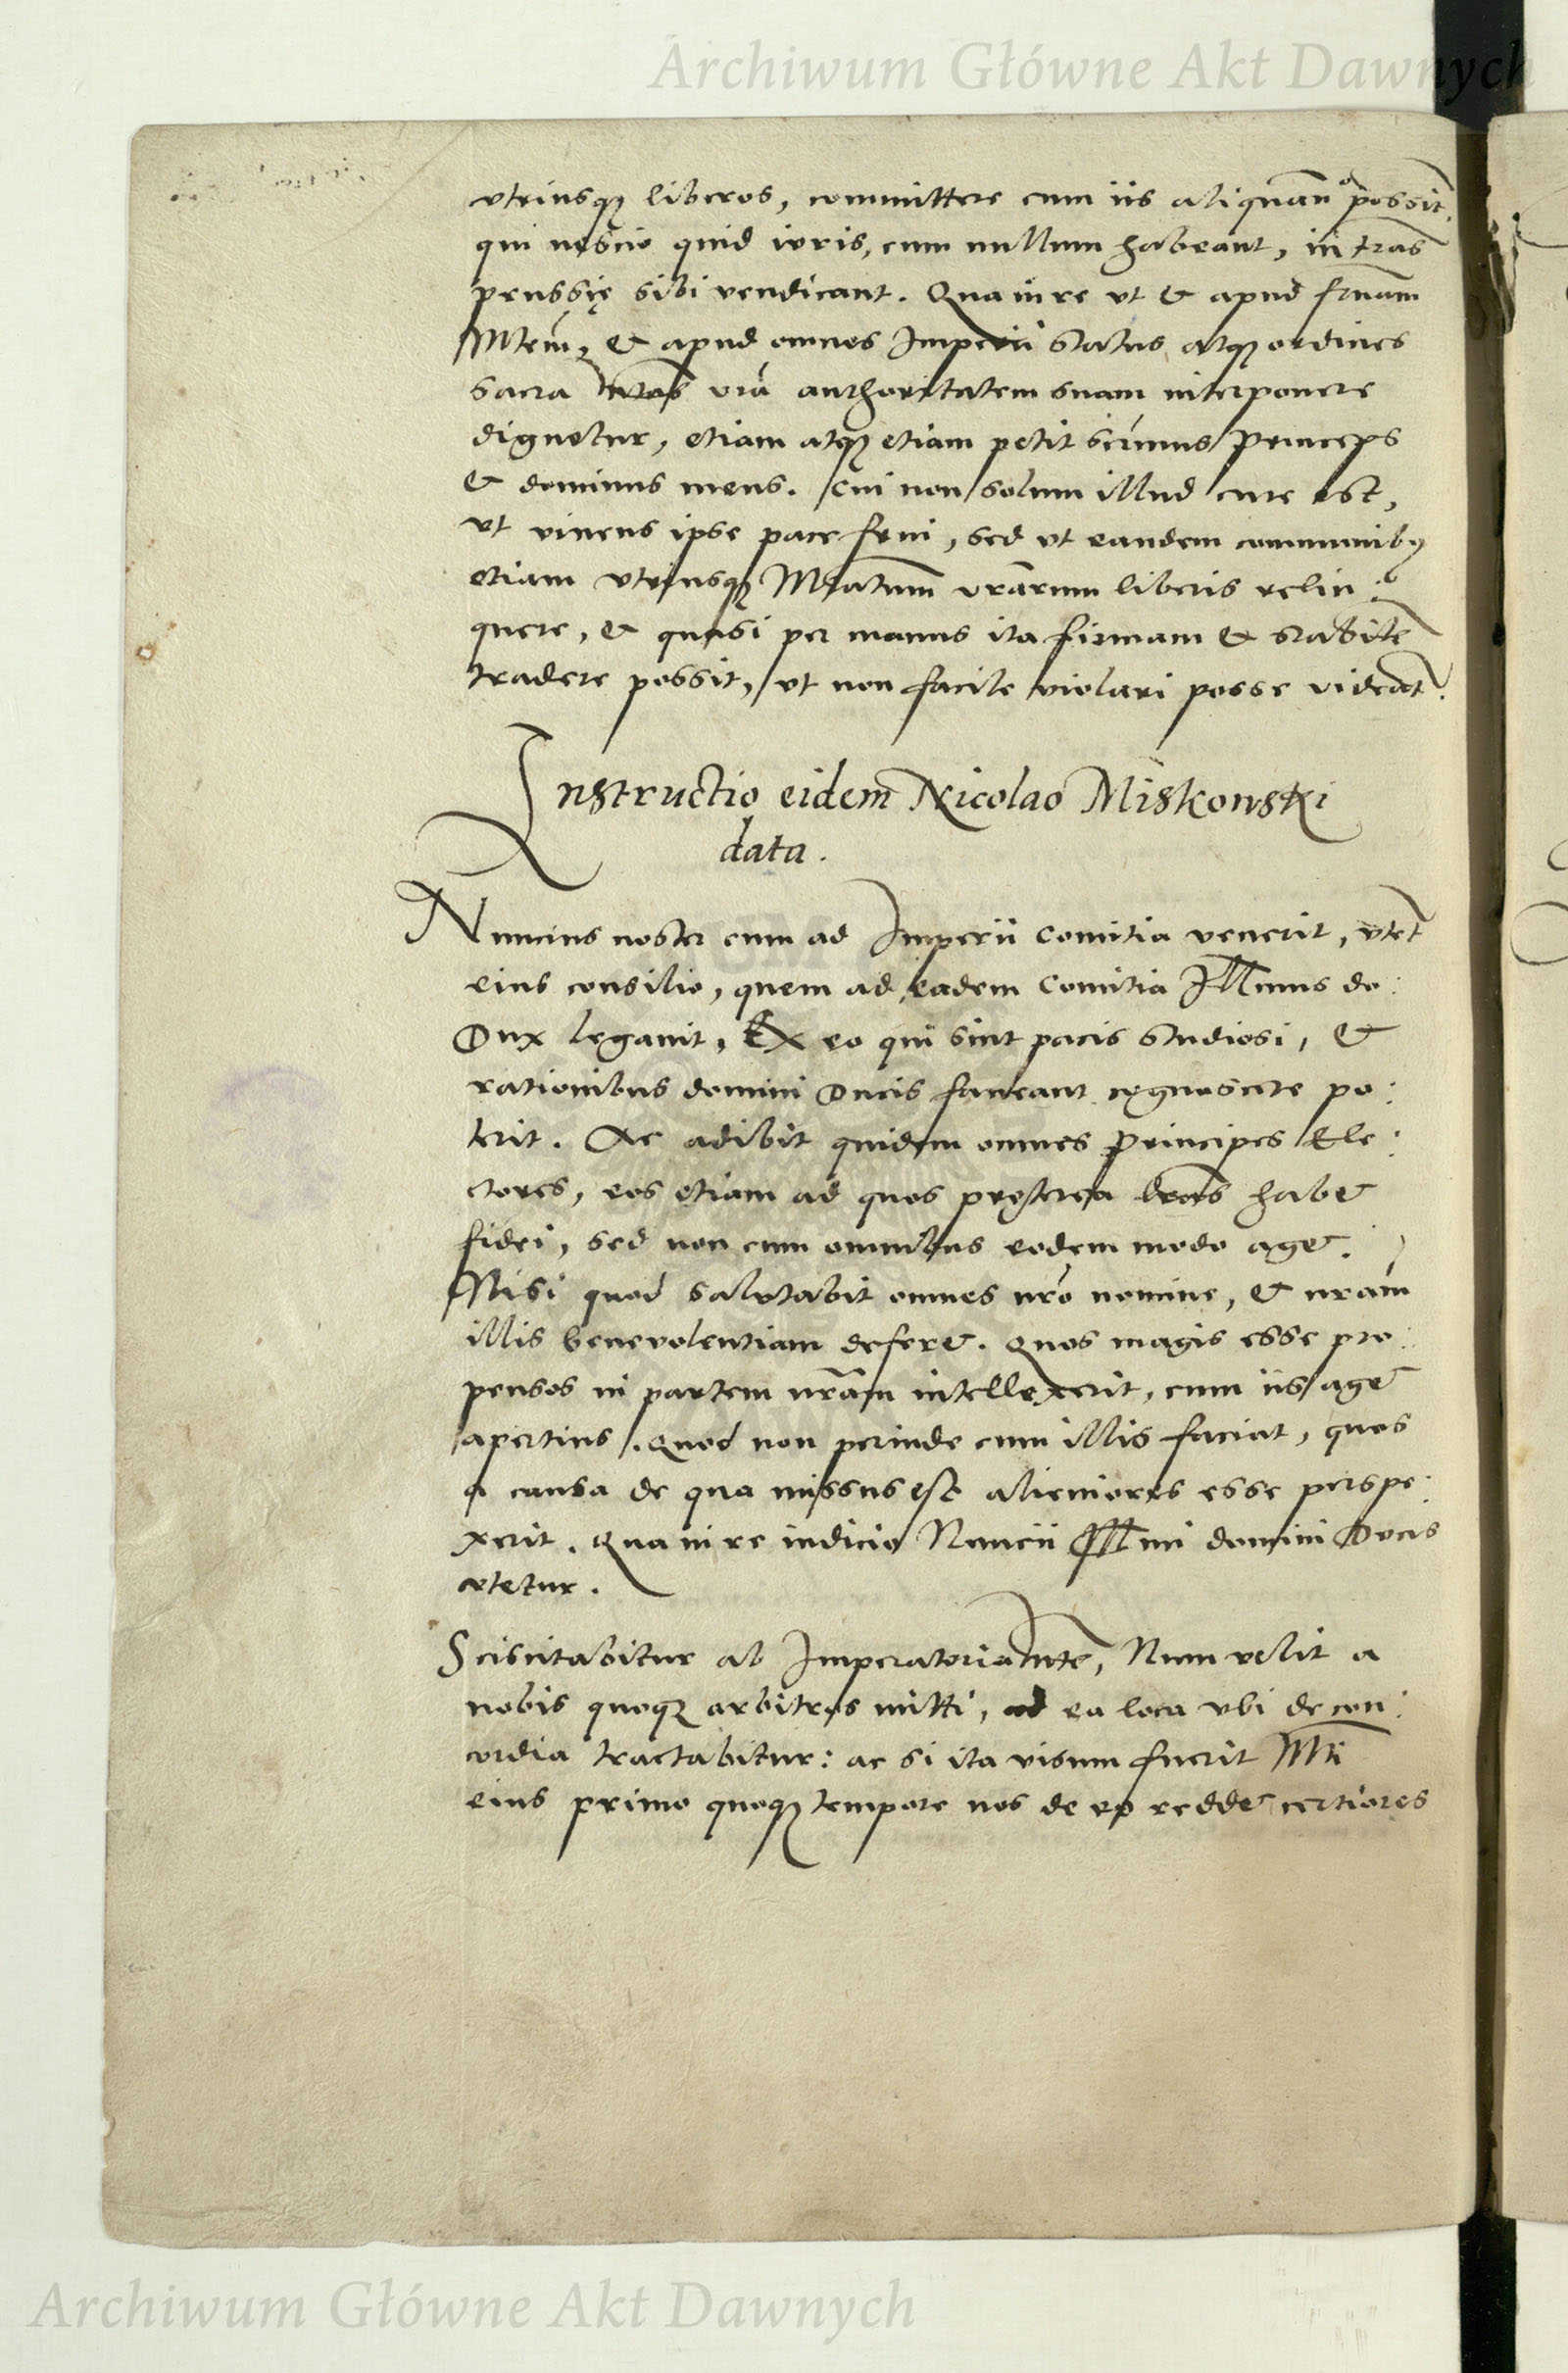 Archiwum Główne Akt Dawnych
vtriusq; liberos, committere cum iis aliquam possit,
qui nescio quid iuris, cum nullum habeant, in tras
prussię sibi vendicant. Qua in re vt & apud
Mtem, & apud omnes Imperii status atq; ordines
sacra vra authoritatem suam interponere
dignetur, etiam atq; etiam petit sermus princeps
& dominus meus. Cui non solum illud cure est,
vt viuens ipse pace frui, sed vt eandem communib9
etiam vtriusq; Mtatum vrarum liberis relin:
quere, & quasi per manus ita firmam & stabile
tradere possit, vt non facile violari posse videat.
Instructio eidem Nicolao Miskowski
data.
Nuncius noster cum ad Imperii Comitia venerit, vtet
eius consilio, quem ad eadem Comitia Illmus do:
Dux legauit, Ex eo qui sint pacis studiosi, &
rationibus domini Ducis faueant cognoscere po:
terit. Ac adibit quidem omnes principes Ele:
ctores, eos etiam ad quos preterea lras habet
fidei, sed non cum omnibus eodem modo aget.
Nisi quod salutabit omnes nro nomine, & nram
illis beneuolentiam deferet. Quos magis esse pro:
pensos in partem nram intellexerit, cum iis aget
apertius. Quod non perinde cum illis faciat, quos
a causa de qua missus est alieniores esse perspe:
xerit. Qua in re iudicio Nuncii Illmi domini Ducis
vtetur.
Sciscitabitur ab Imperatoria Mte, Num velit a
nobis quoq; arbitros mitti, ad ea loca vbi de con:
cordia tractabitur: ac si ita visum fuerit Mti
eius primo quoq; tempore nos de eo reddet certiores
Archiwum Główne Akt Dawnych